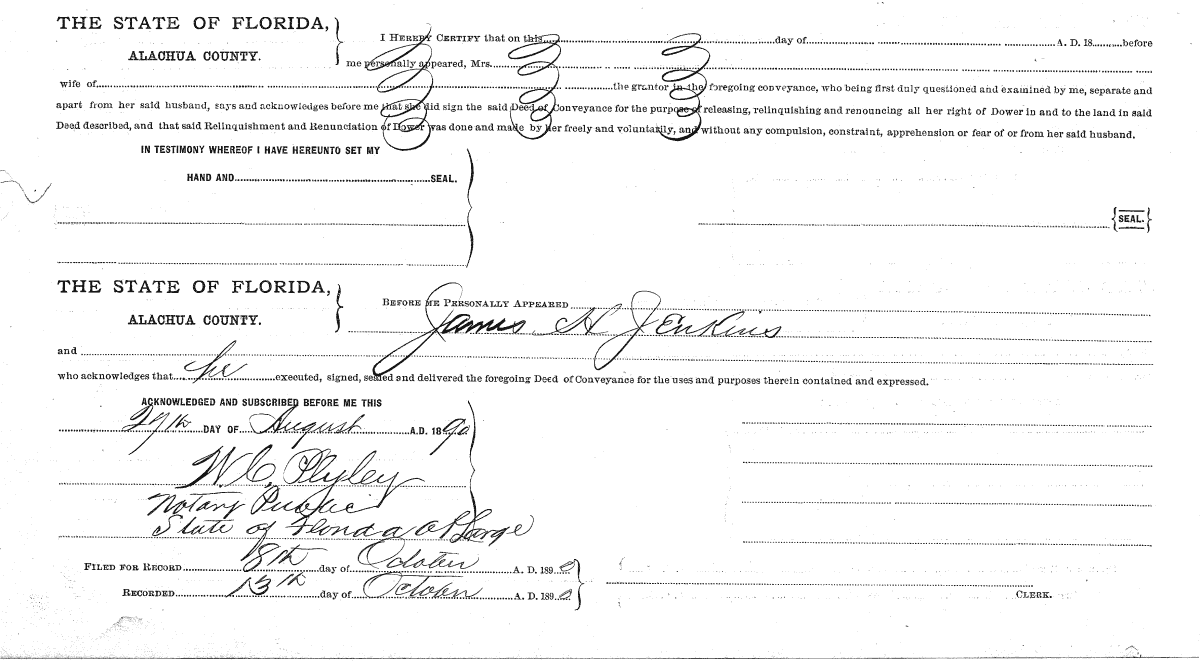 THE STATE OF FLORIDA,
ALACHUA COUNTY.
I HEREBY CERTIFY that on this day of A. D. 18 before
me personally appeared, Mrs.
wife of the grantor in the foregoing conveyance, who being first duly questioned and examined by me, separate and
apart from her said husband, says and acknowledges before me that she did sign the said Deed of Conveyance for the purpose of releasing, relinquishing and renouncing all her right of Dower in and to the land in said
Deed described, and that said Relinquishment and Renunciation of Dower was done and made by her freely and voluntarily, and without any compulsion, constraint, apprehension or fear of or from her said husband.
IN TESTIMONY WHEREOF I HAVE HEREUNTO SET MY
HAND AND SEAL.
SEAL.
THE STATE OF FLORIDA,
ALACHUA COUNTY.
BEFORE ME PERSONALLY APPEARED
James H Jenkins
and
who acknowledges that he executed, signed, sealed and delivered the foregoing Deed of Conveyance for the uses and purposes therein contained and expressed.
ACKNOWLEDGED AND SUBSCRIBED BEFORE ME THIS
27th DAY OF August A.D. 1890
W. C. Plyley
Notary Public
State of Florida at Large
FILED FOR RECORD 8th day of October A. D. 1890
RECORDED 13th day of October A. D. 1890
CLERK.